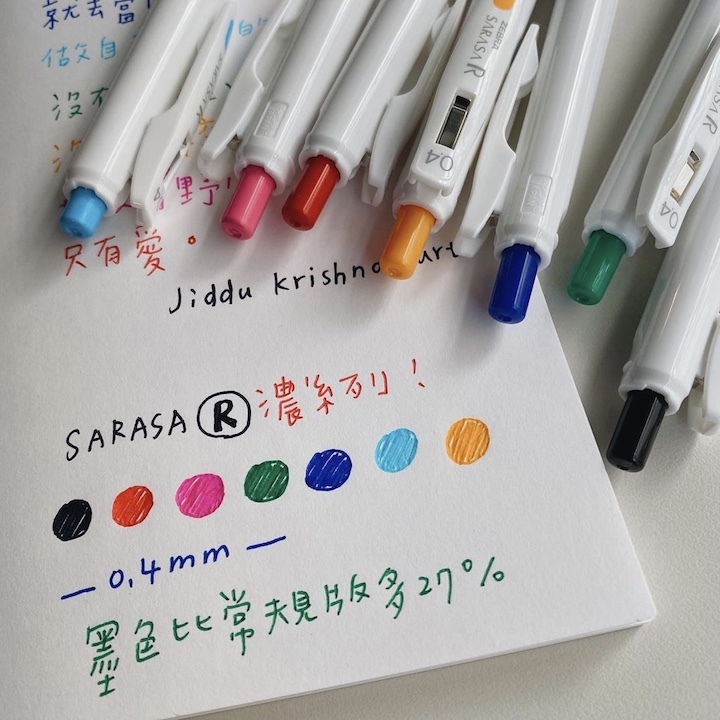 就去當
做自
沒有
只有愛。
Jiddu krishna urt
SARASA R 濃系列！
0.4mm
墨色比常規版多27%
ZEBRA
SARASA R
0.4
SARASA R
0.4